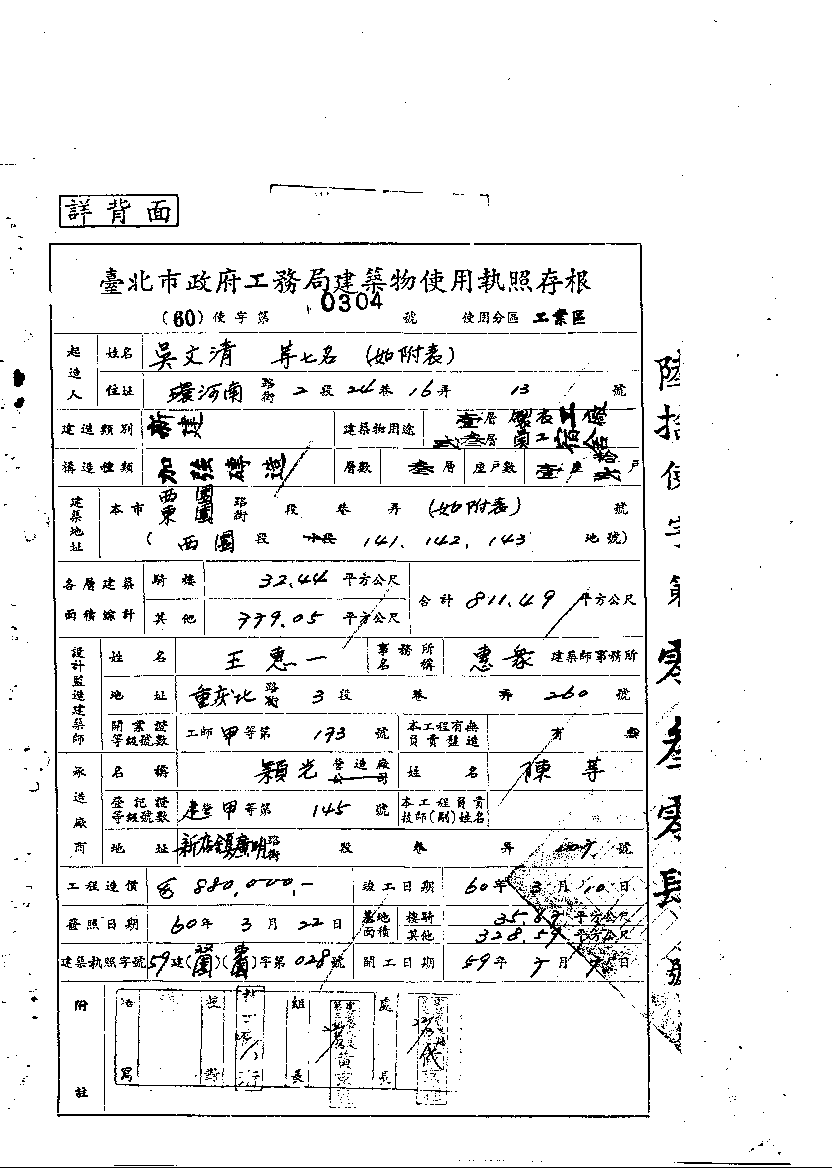 詳背面
臺北市政府工務局建築物使用執照存根
(60)使字第 0304 號 使用分區 工業區
起造人 姓名 吳文清 等七名 (如附表)
住址 環河南 路街 2 段 24 巷 16 弄 13 號
建造類別 新建 建築物用途 壹層
貳叁層
構造種類 加強磚造 層數 叁層 座戶數 壹座 拾貳戶
建築地址 本市 西園 東園 路街 段 巷 弄 (如附表) 號
( 西園 段 小段 141, 142, 143 地號)
各層建築面積綜計 騎樓 32.44 平方公尺 合計 811.49 平方公尺
其他 779.05 平方公尺
設計監造建築師 姓名 王惠一 事務所名稱 惠眾 建築師事務所
地址 重慶北 路街 3 段 巷 弄 260 號
開業證等級號數 工師 甲 等第 173 號 本工程有無負責監造 有 無
承造廠商 名稱 穎光 營造廠公司 姓名 陳等
登記證等級號數 建營 甲 等第 145 號 本工程負責技師(副)姓名
地址 新店鎮廣明 路街 段 巷 弄 號
工程造價 880,000.- 竣工日期 60年 3月 10日
發照日期 60年 3月 22日 基地面積 樓騎 平方公尺
其他 328.59 平方公尺
建築執照字號 59建( )( )字第 028號 開工日期 59年 7月 日
附註
組長
處長
陸拾使字第零叁零肆號